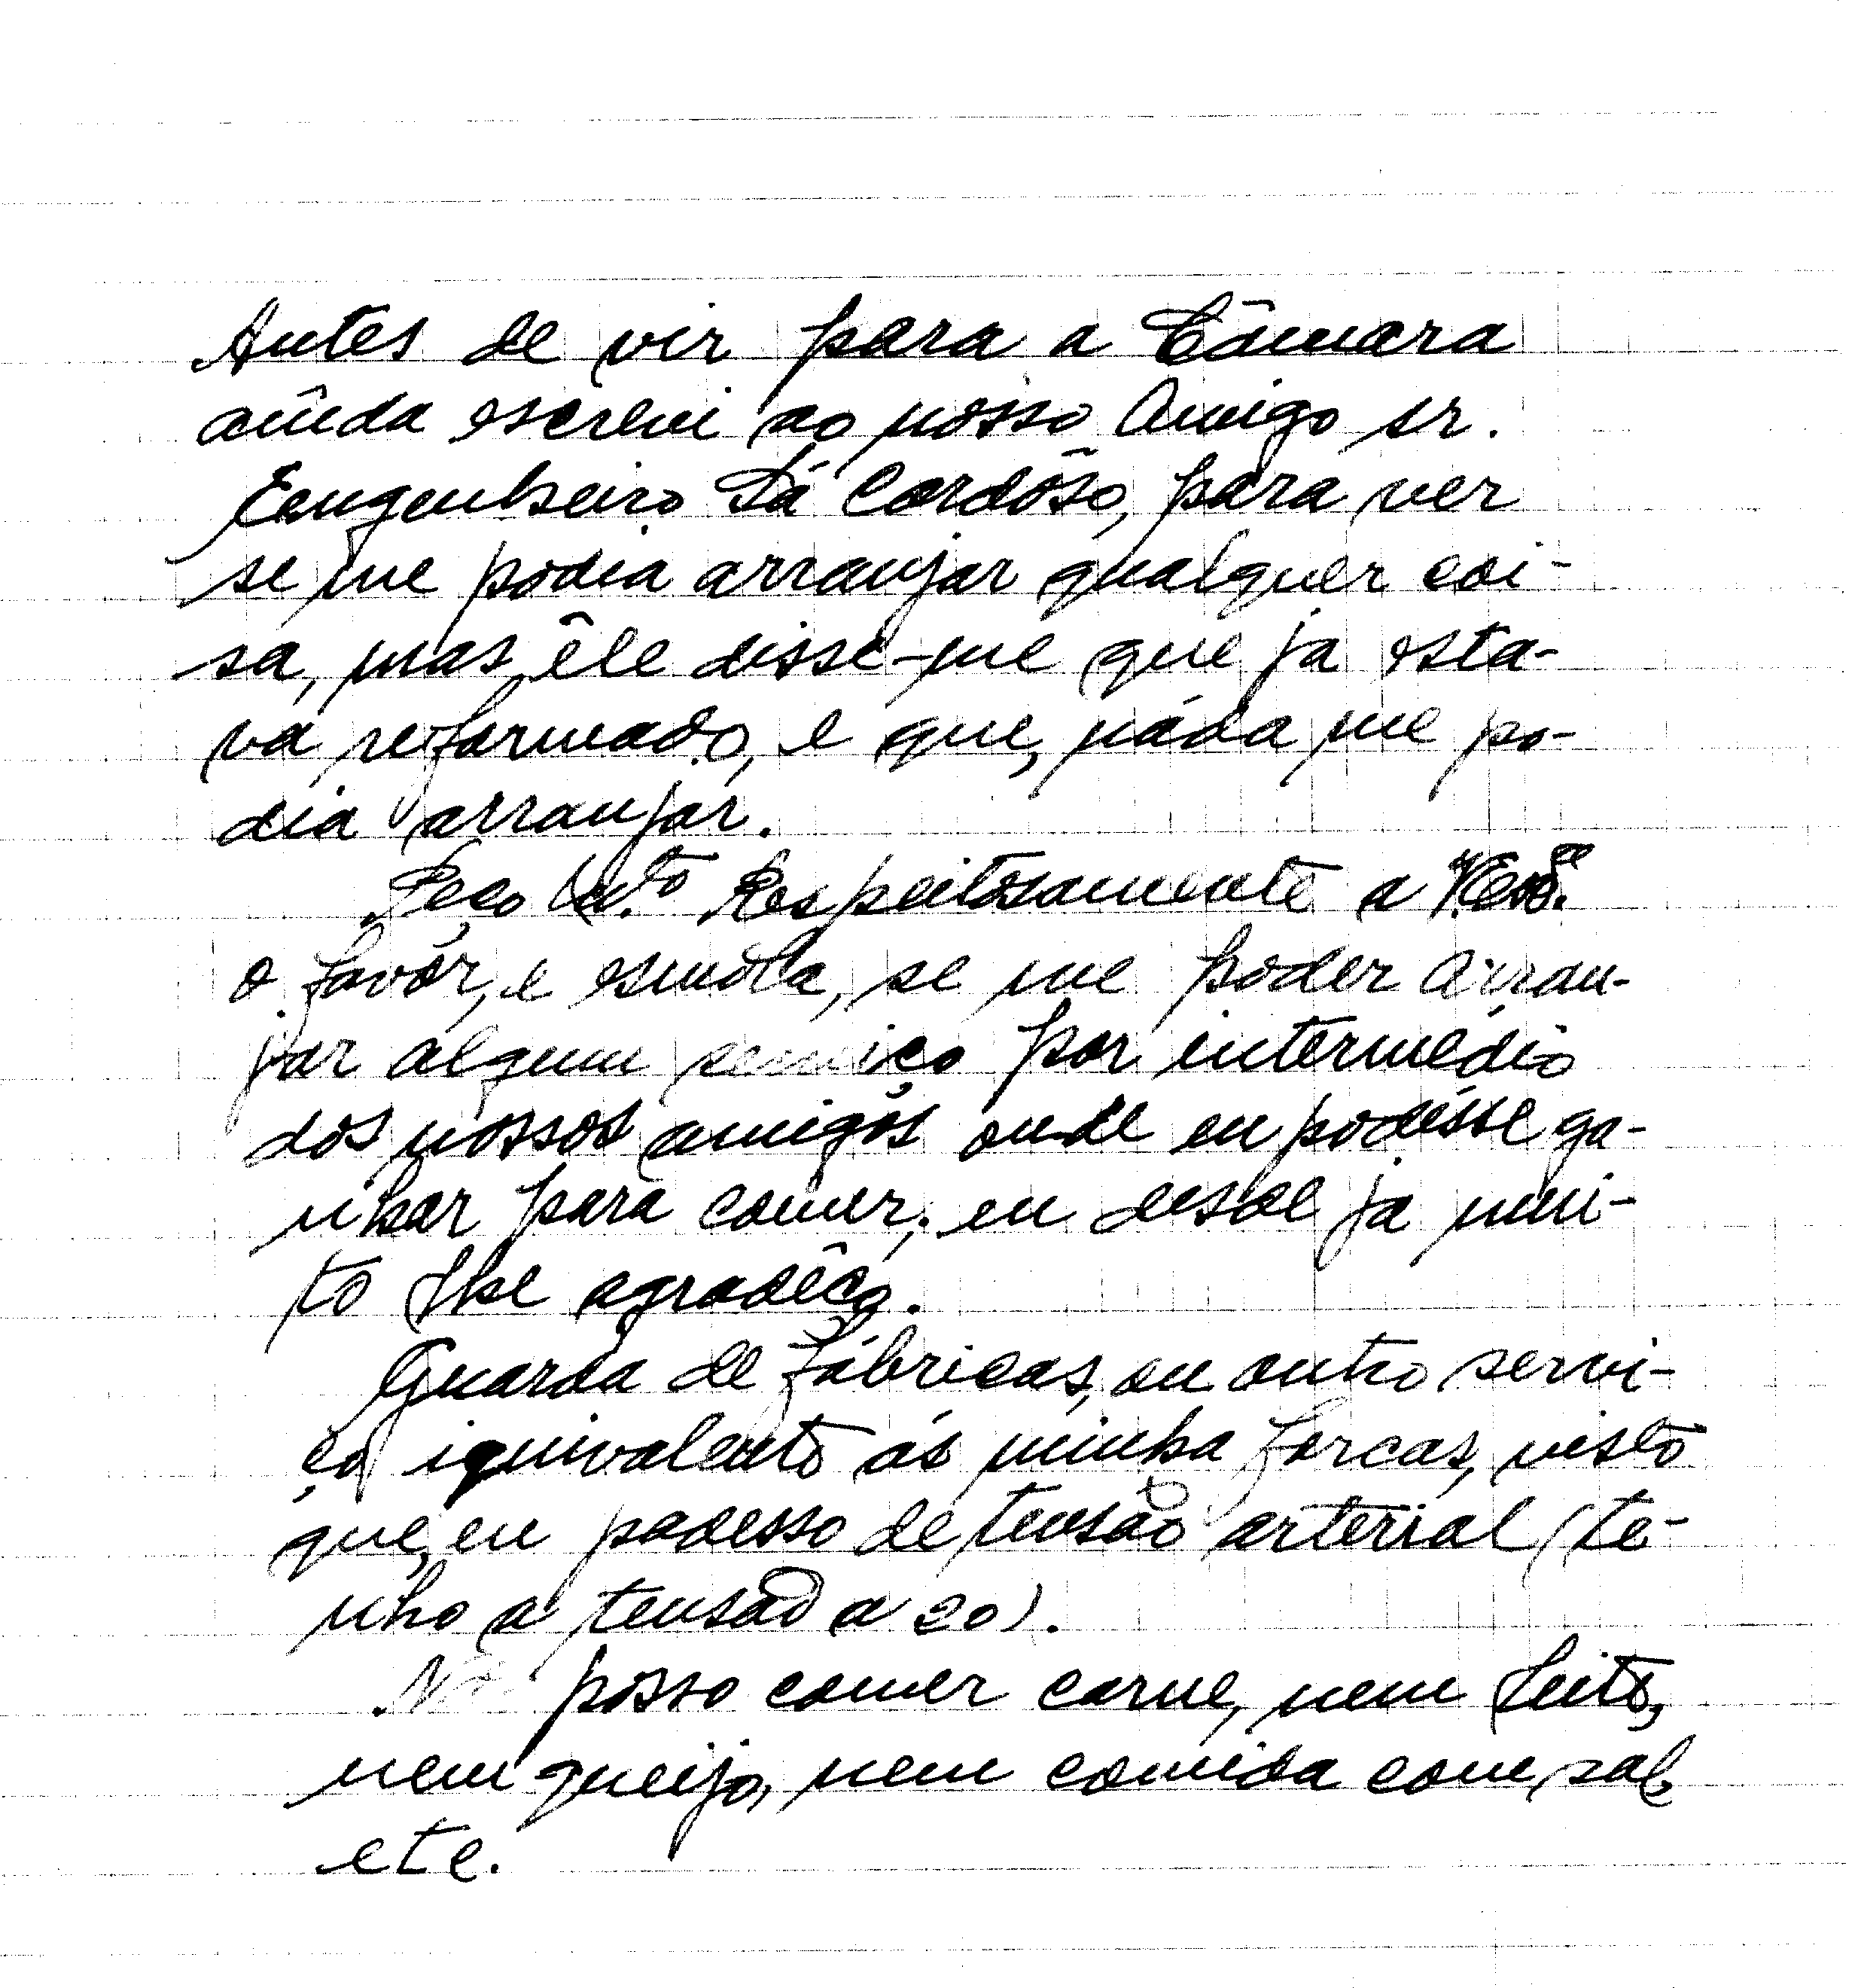 Antes de vir para a Câmara
aínda escrevi ao nosso Amigo sr.
Eengenheiro Sá Cardôso, para ver
se me podia arranjar qualquer coi-
sa, mas êle disse-me que ja esta-
va reformado, e que, náda me po-
dia arranjar.
Peço M.to Respeitosamente a V.
o favôr, e esmóla, se me poder arran-
jar algum serviço por intermédio
dos nossos amigos onde eu podésse ga-
nhar para comer, eu desde ja mui-
to lhe agradêço.
Guarda de fábricas, ou outro servi-
ço iquivalente ás minha forcas, visto
que, eu padesso de tensão arterial (te-
nho a tensão a 20).
Não posso comer carne, nem leite,
nem queijo, nem comida com sal,
etc.